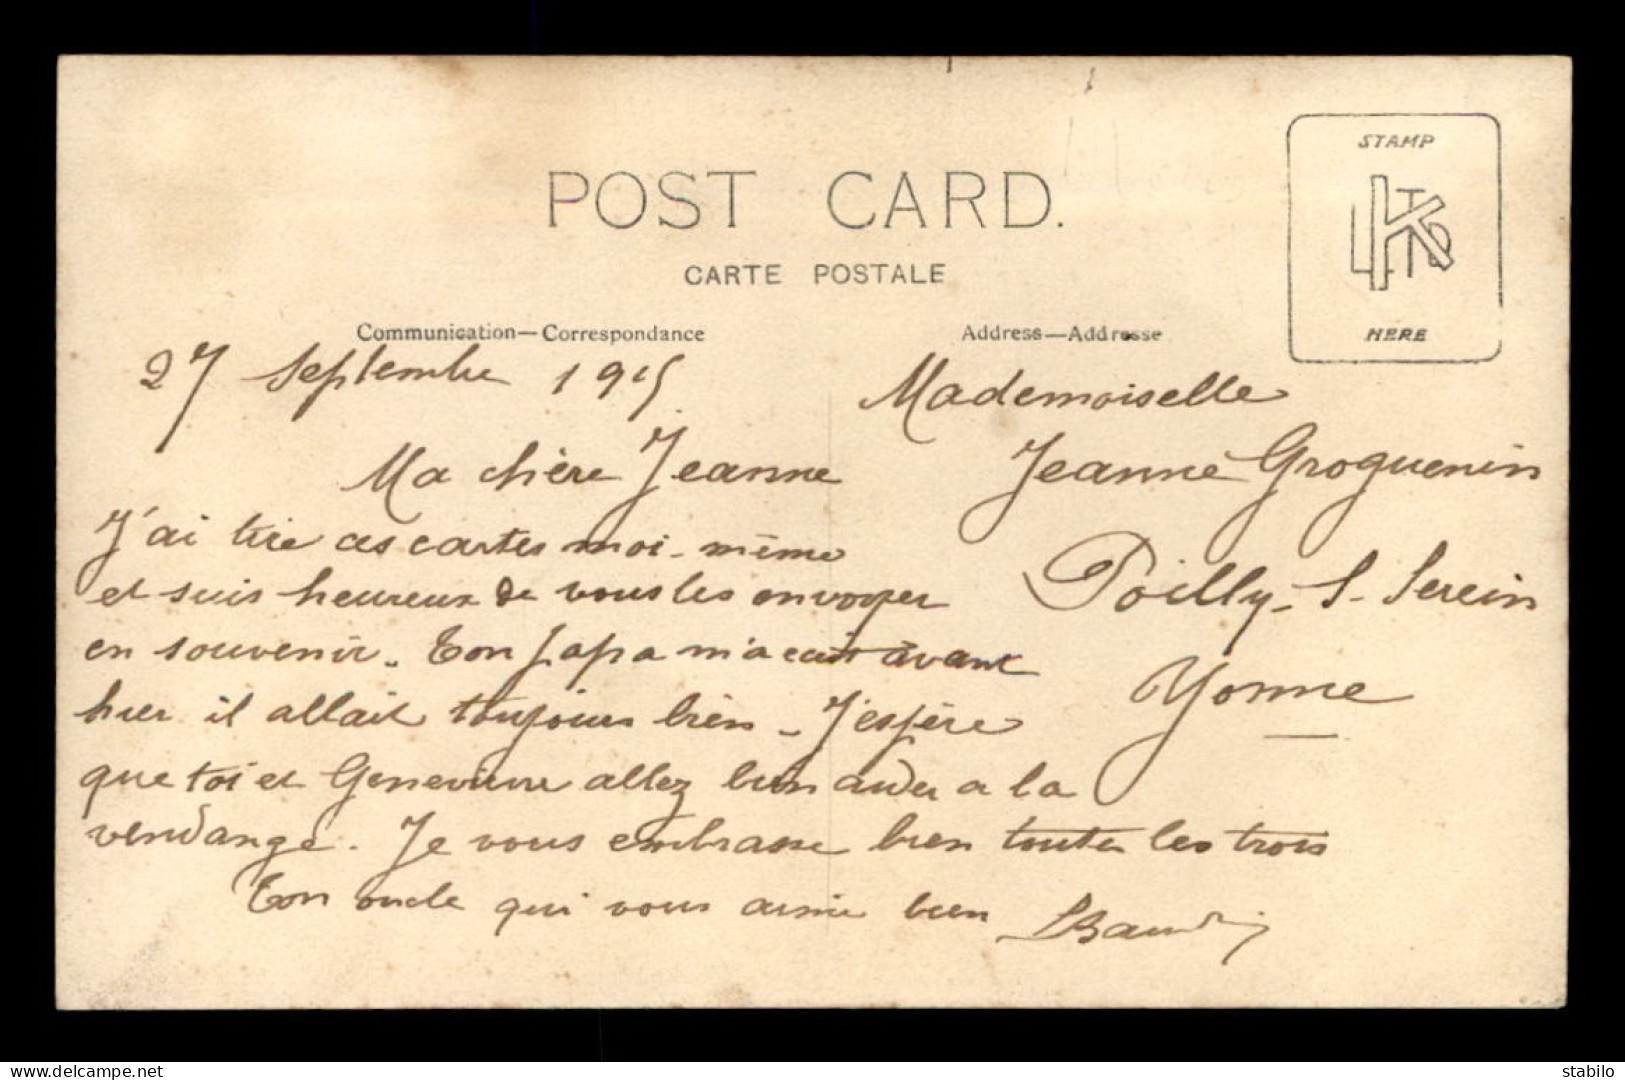 POST CARD.
CARTE POSTALE
STAMP
HERE
Communication—Correspondance
Address—Addresse
27 Septembre 1915
Ma chère Jeanne
J'ai tiré ces cartes moi-même
et suis heureux de vous les envoyer
en souvenir. Ton papa m'a écrit avant
hier il allait toujours bien - J'espère
que toi et Geneviève allez bien aider a la
vendange. Je vous embrasse bien toutes les trois
Ton oncle qui vous aime bien
Mademoiselle
Jeanne Groguenin
Poilly-S-Serein
Yonne
delcampe.net
stabilo